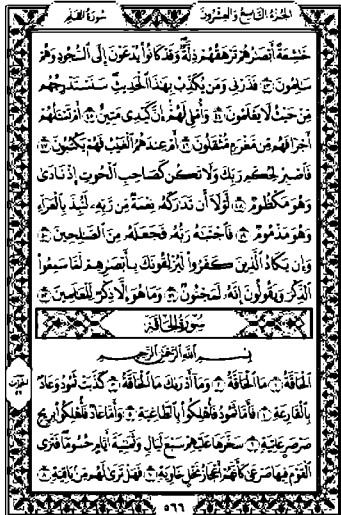 الجزء التاسع والعشرون
سورة القلم
خَٰشِعَةً أَبْصَٰرُهُمْ تَرْهَقُهُمْ ذِلَّةٌ وَقَدْ كَانُوا۟ يُدْعَوْنَ إِلَى ٱلسُّجُودِ وَهُمْ
سَٰلِمُونَ ٤٣ فَذَرْنِى وَمَن يُكَذِّبُ بِهَٰذَا ٱلْحَدِيثِ سَنَسْتَدْرِجُهُم
مِّنْ حَيْثُ لَا يَعْلَمُونَ ٤٤ وَأُمْلِى لَهُمْ إِنَّ كَيْدِى مَتِينٌ ٤٥ أَمْ تَسْـَٔلُهُمْ
أَجْرًا فَهُم مِّن مَّغْرَمٍ مُّثْقَلُونَ ٤٦ أَمْ عِندَهُمُ ٱلْغَيْبُ فَهُمْ يَكْتُبُونَ ٤٧
فَٱصْبِرْ لِحُكْمِ رَبِّكَ وَلَا تَكُن كَصَاحِبِ ٱلْحُوتِ إِذْ نَادَىٰ
وَهُوَ مَكْظُومٌ ٤٨ لَّوْلَآ أَن تَدَٰرَكَهُۥ نِعْمَةٌ مِّن رَّبِّهِۦ لَنُبِذَ بِٱلْعَرَآءِ
وَهُوَ مَذْمُومٌ ٤٩ فَٱجْتَبَٰهُ رَبُّهُۥ فَجَعَلَهُۥ مِنَ ٱلصَّٰلِحِينَ ٥٠
وَإِن يَكَادُ ٱلَّذِينَ كَفَرُوا۟ لَيُزْلِقُونَكَ بِأَبْصَٰرِهِمْ لَمَّا سَمِعُوا۟
ٱلذِّكْرَ وَيَقُولُونَ إِنَّهُۥ لَمَجْنُونٌ ٥١ وَمَا هُوَ إِلَّا ذِكْرٌ لِّلْعَٰلَمِينَ ٥٢
سورة الحاقة
بِسْمِ ٱللَّهِ ٱلرَّحْمَٰنِ ٱلرَّحِيمِ
ٱلْحَآقَّةُ ١ مَا ٱلْحَآقَّةُ ٢ وَمَآ أَدْرَىٰكَ مَا ٱلْحَآقَّةُ ٣ كَذَّبَتْ ثَمُودُ وَعَادٌۢ
بِٱلْقَارِعَةِ ٤ فَأَمَّا ثَمُودُ فَأُهْلِكُوا۟ بِٱلطَّاغِيَةِ ٥ وَأَمَّا عَادٌ فَأُهْلِكُوا۟ بِرِيحٍ
صَرْصَرٍ عَاتِيَةٍ ٦ سَخَّرَهَا عَلَيْهِمْ سَبْعَ لَيَالٍ وَثَمَٰنِيَةَ أَيَّامٍ حُسُومًا فَتَرَى
ٱلْقَوْمَ فِيهَا صَرْعَىٰ كَأَنَّهُمْ أَعْجَازُ نَخْلٍ خَاوِيَةٍ ٧ فَهَلْ تَرَىٰ لَهُم مِّنۢ بَاقِيَةٍ ٨
٥٦٦